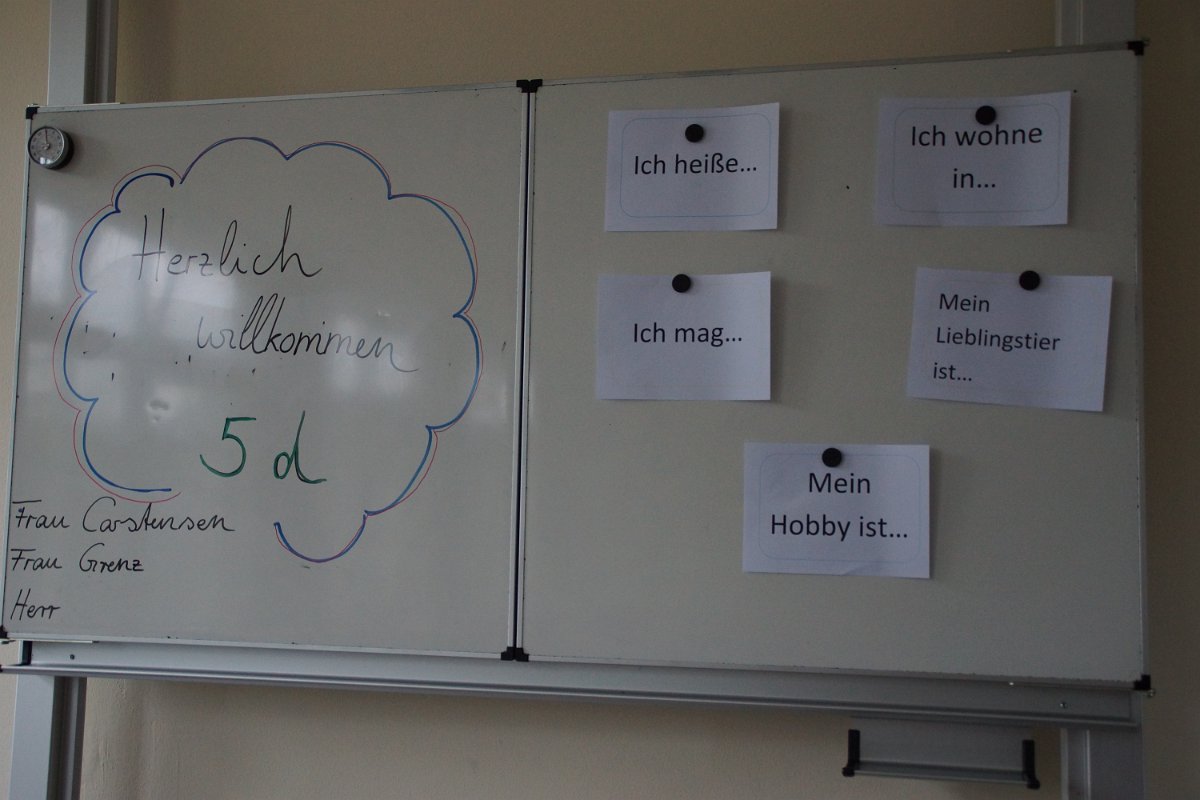 Herzlich
willkommen
5 d
Frau Carstensen
Frau Grenz
Herr
Ich heiße...
Ich wohne
in...
Ich mag...
Mein
Lieblingstier
ist...
Mein
Hobby ist...